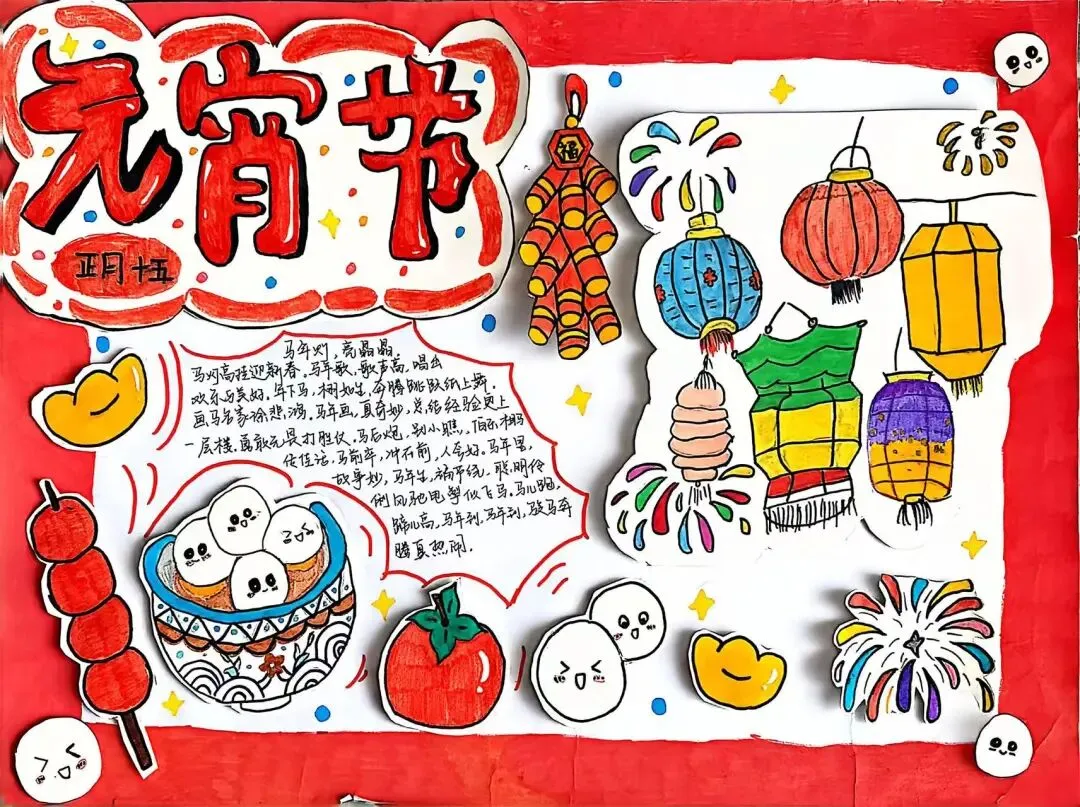 元宵节
正月十五
福
马年灯,亮晶晶。
马灯高挂迎新春。马年歌,歌声高,唱出
欢乐与美好。年下马,栩如生,奔腾跳跃纸上舞。
画马名家徐悲鸿。马年画,真奇妙,总结经验更上
一层楼。勇敢无畏打胜仗。马后炮,别小瞧。伯乐相马
传佳话,马前卒,冲在前,人夸好。马年里,
故事妙,马年生,福节绕,聪明伶
俐风驰电掣似飞马。马儿跑,
蹄儿高,马年到,马年到,骏马奔
腾真热闹。